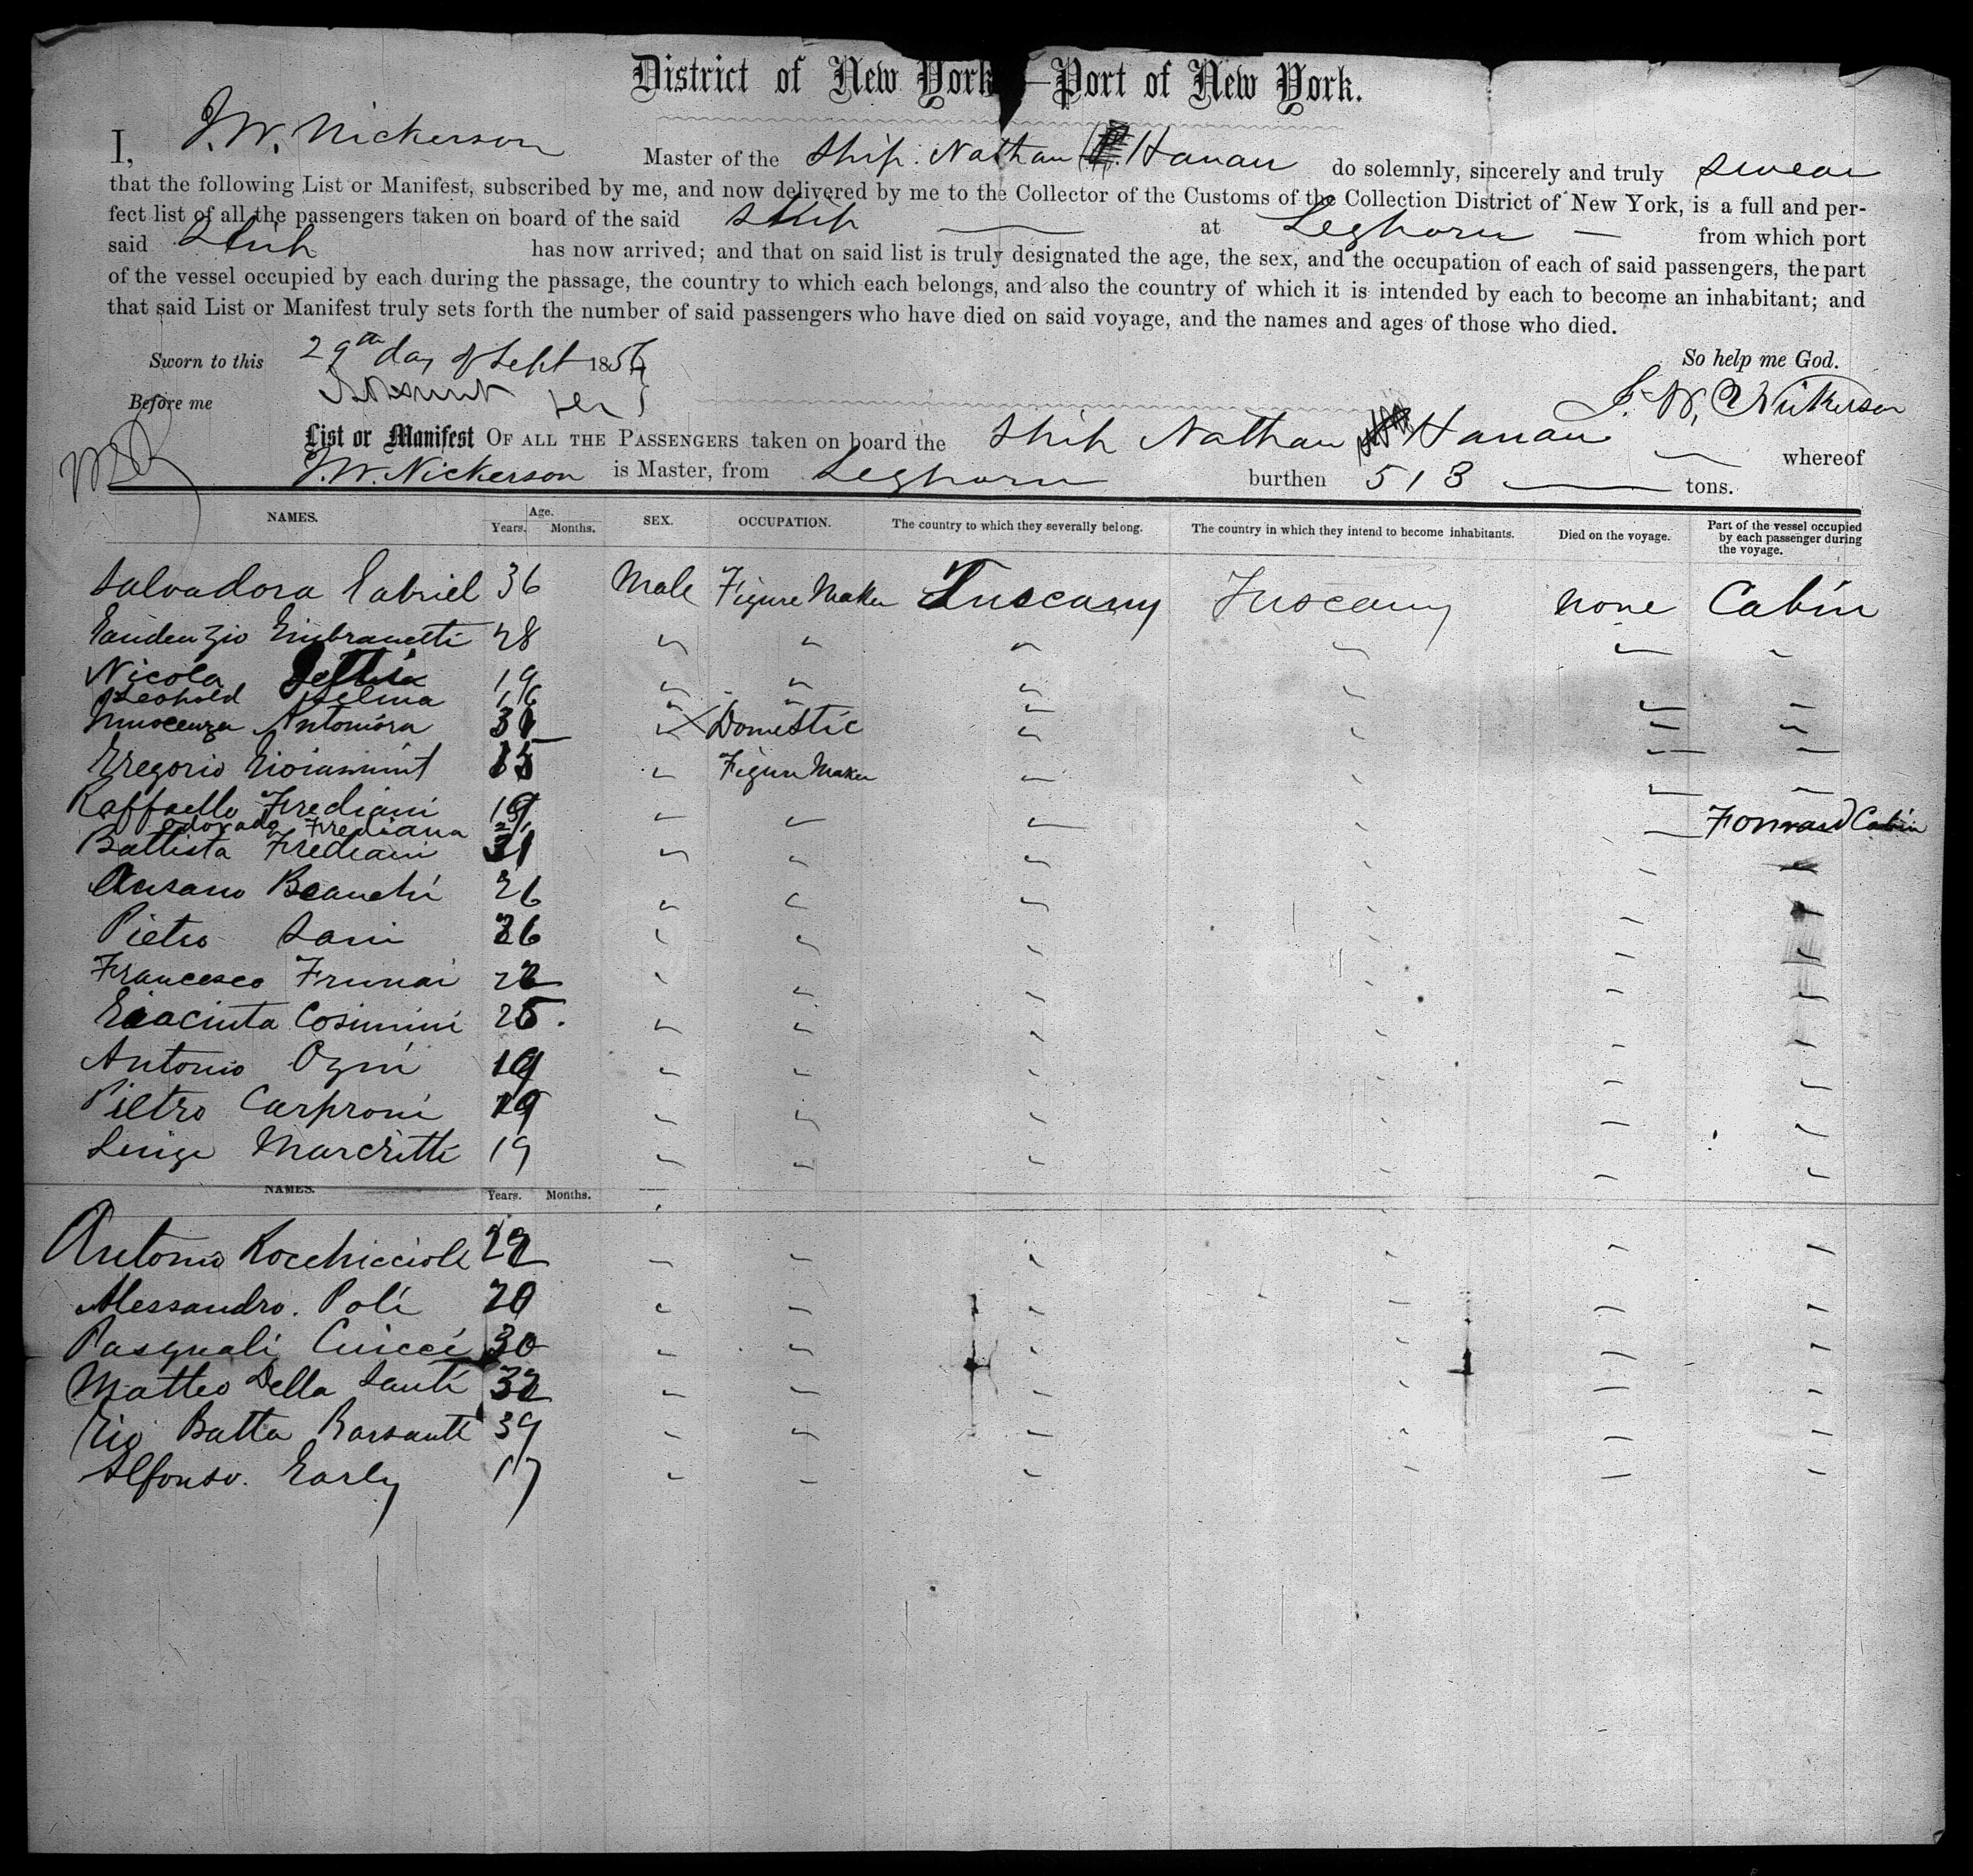 District of New York—Port of New York.
I, J. W. Nickerson Master of the Ship Nathan Hanau do solemnly, sincerely and truly swear
that the following List or Manifest, subscribed by me, and now delivered by me to the Collector of the Customs of the Collection District of New York, is a full and per-
fect list of all the passengers taken on board of the said Ship at Leghorn from which port
said Ship has now arrived; and that on said list is truly designated the age, the sex, and the occupation of each of said passengers, the part
of the vessel occupied by each during the passage, the country to which each belongs, and also the country of which it is intended by each to become an inhabitant; and
that said List or Manifest truly sets forth the number of said passengers who have died on said voyage, and the names and ages of those who died.
Sworn to this 29th day of Sept 1856 So help me God.
Before me J. W. Nickerson
List or Manifest OF ALL THE PASSENGERS taken on board the Ship Nathan Hanau whereof
J. W. Nickerson is Master, from Leghorn burthen 513 tons.
NAMES. Age. Years. Months. SEX. OCCUPATION. The country to which they severally belong. The country in which they intend to become inhabitants. Died on the voyage. Part of the vessel occupied by each passenger during the voyage.
Salvadora Gabriel 36 Male Figure Maker Tuscany Tuscany none Cabin
Gaudenzio 28
Nicola 19
Leopold Selma 16
Antoniora Domestic
Gregorio Figure Maker
Raffaello Frediani 19 Forward Cabin
Odorado Frediana
Battista Frediani 31
Ansano Beanchi 26
Pietro Sani 36
Francesco Frumai 22
Giacinta Cosimini 25.
Antonio Ozni 19
Pietro Carproni 19
Luigi Marchitti 19
NAMES. Years. Months.
Antonio Rocchiccioli 22
Alessandro. Poli 20
Pasquali Ciucci 30
Matteo Della Santi 32
Gio Batta Barsanti 39
Alfonso. Early 17